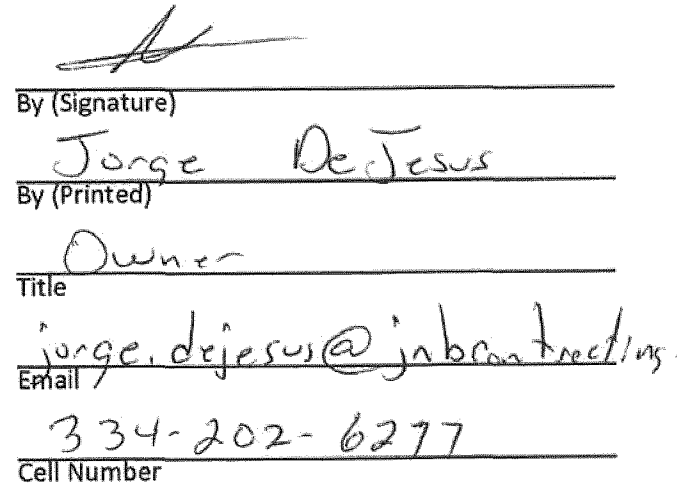 By (Signature)
Jorge DeJesus
By (Printed)
Owner
Title
jorge.dejesus@jnbcontracting.
Email
334-202-6277
Cell Number